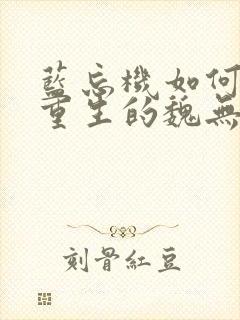 藍忘機如何
重生的魏無
刻骨紅豆